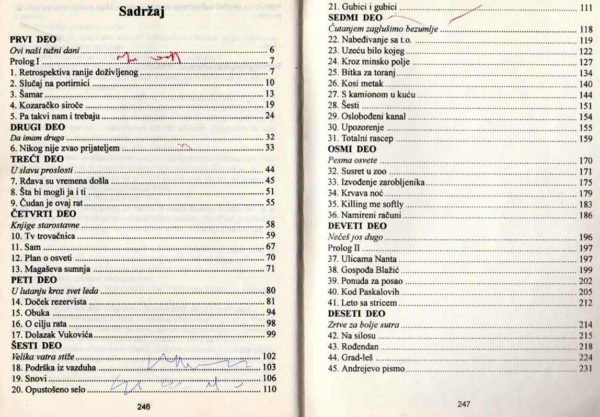 Sadržaj
PRVI DEO
Ovi naši tužni dani 6
Prolog I 7
1. Retrospektiva ranije doživljenog 7
2. Slučaj na portirnici 10
3. Šamar 13
4. Kozaračko siroče 19
5. Pa takvi nam i trebaju 24
DRUGI DEO
Da imam druga 32
6. Nikog nije zvao prijateljem 33
TREĆI DEO
U slavu proslosti 44
7. Rđava su vremena došla 45
8. Šta bi mogli ja i ti 51
9. Čudan je ovaj rat 55
ČETVRTI DEO
Knjige starostavne 58
10. Tv trovačnica 59
11. Sam 67
12. Plan o osveti 70
13. Magaševa sumnja 71
PETI DEO
U lutanju kroz svet leda 80
14. Doček rezervista 81
15. Obuka 94
16. O cilju rata 98
17. Dolazak Vukovića 99
ŠESTI DEO
Velika vatra stiže 102
18. Podrška iz vazduha 103
19. Snovi 106
20. Opustošeno selo 110
246
21. Gubici i gubici 111
SEDMI DEO
Ćutanjem zaglušimo bezumlje 118
22. Nabeđivanje sa t.o. 119
23. Uzeću bilo kojeg 122
24. Kroz minsko polje 127
25. Bitka za toranj 134
26. Kosi metak 140
27. S kamionom u kuću 144
28. Šesti 151
29. Oslobođeni kanal 154
30. Upozorenje 155
31. Totalni rascep 159
OSMI DEO
Pesma osvete 170
32. Susret u zoo 171
33. Izvođenje zarobljenika 175
34. Krvava noć 179
35. Killing me softly 183
36. Namireni računi 186
DEVETI DEO
Nećeš jos dugo 196
Prolog II 197
37. Ulicama Nanta 197
38. Gospođa Blažić 199
39. Ponuda za posao 202
40. Kod Paskalovih 205
41. Leto sa stricem 212
DESETI DEO
Zrtve za bolje sutra 214
42. Na silosu 215
43. Rođendan 218
44. Grad-leš 224
45. Andrejevo pismo 231
247